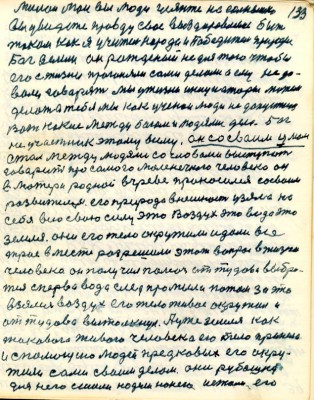 Милаи мои вы люди гляньте на солнышко 133
Вы увидете правду свое выздоровление быт
таким как я учител народа и Победител природы
Бог земли он рожденый не для того чтобы
его с жизни прогоняли сами делом а ему не до
говорят мы ученаи
делат а тебя мы как ученаи люди не допустим
какие между богом и людями дела. Бог
не участник этому делу. он со своим умом
стал между людями со словами выступат
говорит про самого маленкого человека он
в матери родной в чреве приносился со своим
развитием его природа внешност узяла на
себя всю свою силу это воздух это вода это
земля. они его тело окружили и дали ему
вместе разрешили этот вопрос в жизни
человека он получил помоч от тудова выбра
лся сперва вода след промыла потом за это
взялся воздух его тело живое окружил и
от тудова вытолкнул. А уже земля как
такового живого человека его тело приняла
и спомощию людей предковых его окру-
жили сами своим делом. они рубашку
для него сшили ножом его